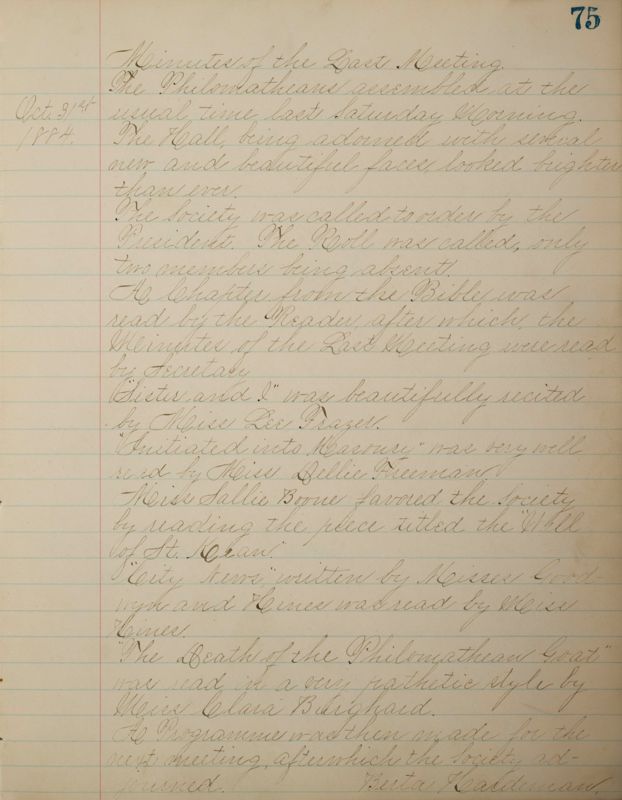 75
Minutes of the Last Meeting.
The Philomatheans assembled at the
Oct. 31st
1884.
usual time last Saturday Morning.
The Hall, being adorned with several
new and beautiful faces, looked brighter
than ever.
The Society was called to order by the
President. The Roll was called, only
two members being absent.
A Chapter from the Bible was
read by the Reader, after which, the
Minutes of the Last Meeting were read
by Secretary
"Sister and I" was beautifully recited
by Miss Lee Frazer.
"Initiated into Masonry" was very well
read by Miss Dellie Freeman.
Miss Sallie Boone favored the Society
by reading the piece titled the "Well
of St. Kean."
"City News," written by Misses Good-
wyn and Hines was read by Miss
Hines.
"The Death of the Philomathean Goat"
was read in a very pathetic style by
Miss Clara Burghard.
A Programme was then made for the
next meeting, after which the Society ad-
journed. Berta Hardeman.